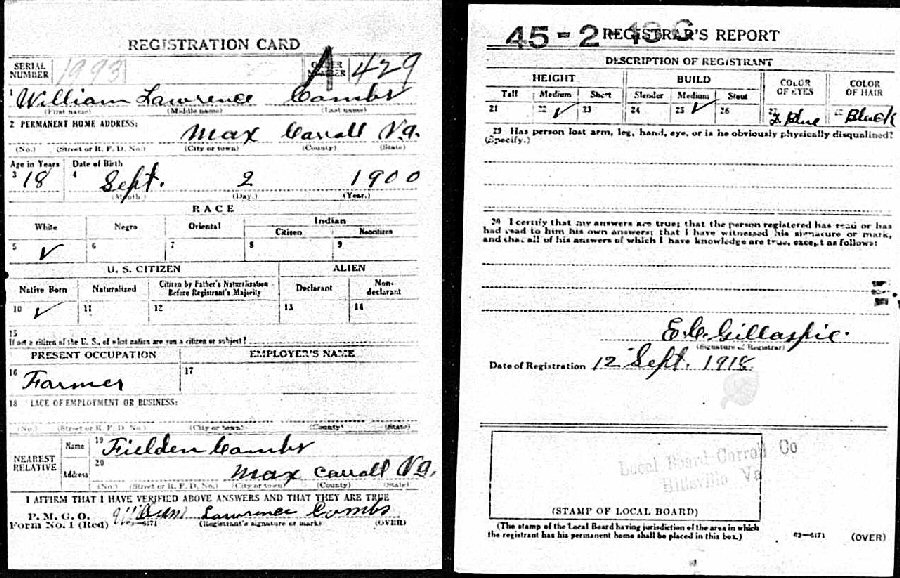 REGISTRATION CARD
SERIAL NUMBER 1993 ORDER NUMBER A 429
1 William Lawrence Combs
(First name) (Middle name) (Last name)
2 PERMANENT HOME ADDRESS:
Max Carroll Va.
(No.) (Street or R. F. D. No.) (City or town) (County) (State)
Age in Years Date of Birth
3 18 4 Sept. 2 1900
(Month.) (Day.) (Year.)
RACE
White Negro Oriental Indian
Citizen Noncitizen
5 ✓ 6 7 8 9
U. S. CITIZEN ALIEN
Native Born Naturalized Citizen by Father's Naturalization Before Registrant's Majority Declarant Non-declarant
10 ✓ 11 12 13 14
15
If not a citizen of the U. S., of what nation are you a citizen or subject?
PRESENT OCCUPATION EMPLOYER'S NAME
16 Farmer 17
18 LACE OF EMPLOYMENT OR BUSINESS:
(No.) (Street or R. F. D. No.) (City or town) (County) (State)
NEAREST RELATIVE
Name 19 Fielden Combs
Address 20 Max Carroll Va.
(No.) (Street or R. F. D. No.) (City or town) (County) (State)
I AFFIRM THAT I HAVE VERIFIED ABOVE ANSWERS AND THAT THEY ARE TRUE
P. M. G. O.
Form No. 1 (Red) William Lawrence Combs
(Registrant's signature or mark) (OVER)
45-2- REGISTRAR'S REPORT
DESCRIPTION OF REGISTRANT
HEIGHT BUILD COLOR OF EYES COLOR OF HAIR
Tall Medium Short Slender Medium Stout
21 22 ✓ 23 24 25 ✓ 26 27 Blue 28 Black
29 Has person lost arm, leg, hand, eye, or is he obviously physically disqualified?
(Specify.)
30 I certify that my answers are true; that the person registered has read or has
had read to him his own answers; that I have witnessed his signature or mark,
and that all of his answers of which I have knowledge are true, except as follows:
E. C. Gillaspie.
(Signature of Registrar)
Date of Registration 12 Sept. 1918
Local Board Carroll Co
Hillsville Va
(STAMP OF LOCAL BOARD)
(The stamp of the Local Board having jurisdiction of the area in which
the registrant has his permanent home shall be placed in this box.)
03-6171 (OVER)